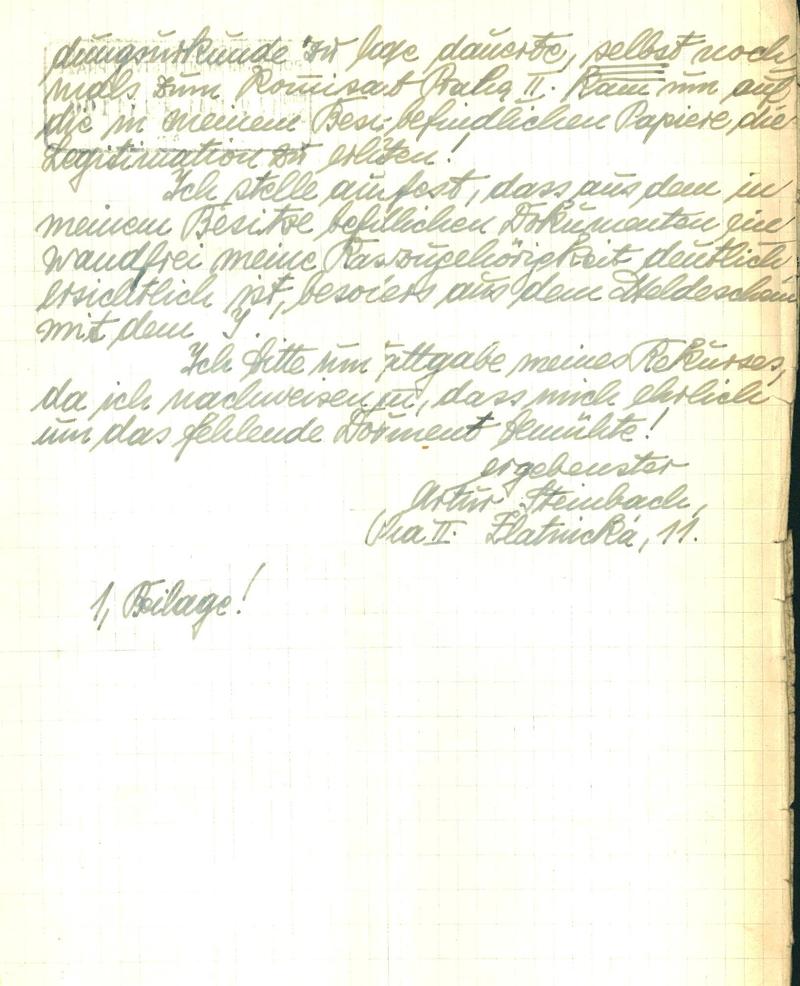 dungsurkunde zu lage dauerte, selbst noch
mals zum Komisat Prahg II. kam um auf
die in meinem Besi- befindlichen Papiere, die
Legitimation zu erlten!
Ich stelle aufest, dass aus dem in
meinem Besitze befillichen Dokumenten ein
wandfrei meine Raszugehörigkeit deutlich
ersichtlich ist, besoiers aus dem Meldeschein
mit dem J.
Ich bitte um attgabe meines Rekurses,
da ich nachweisen , dass mich ehrlich
um das fehlende Dorment bemühte!
ergebenster
Artur Steinbach,
Pra II. Zlatnická, 11.
1, Beilage!